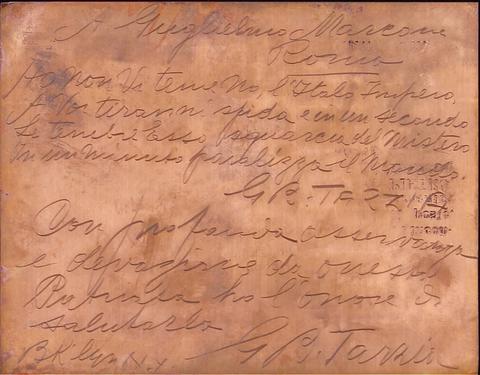 A Guglielmo Marconi
Roma
non Vi temeno l'Italo Impero,
A Voi tiranni sfida e in un secondo
Le tenebre Esso squarcia del Mistero
In un minuto paralizza il Mondo.
G. B. TARZIA
Con profonda osservanza
e devozione da questa
ho l'onore di
salutarlo
BKlyn N.Y. G. B. Tarzia